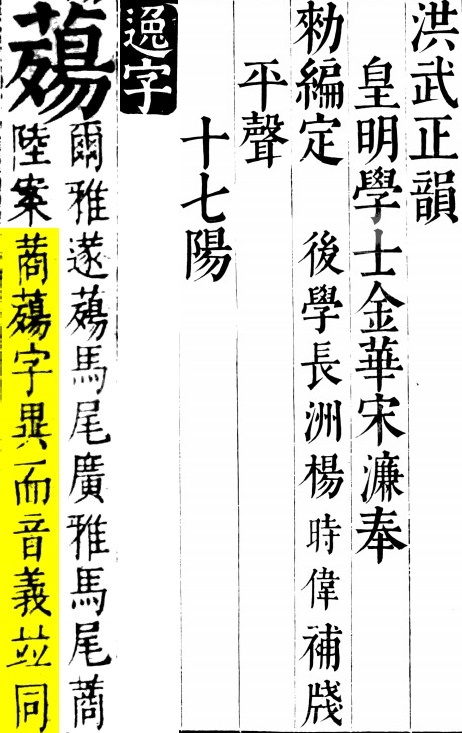 洪武正韻
皇明學士金華宋濂奉
勑編定 後學長洲楊時偉補牋
平聲
十七陽
逸字
薚
爾雅蓫薚馬尾廣雅馬尾蔏
陸案蔏薚字異而音義並同